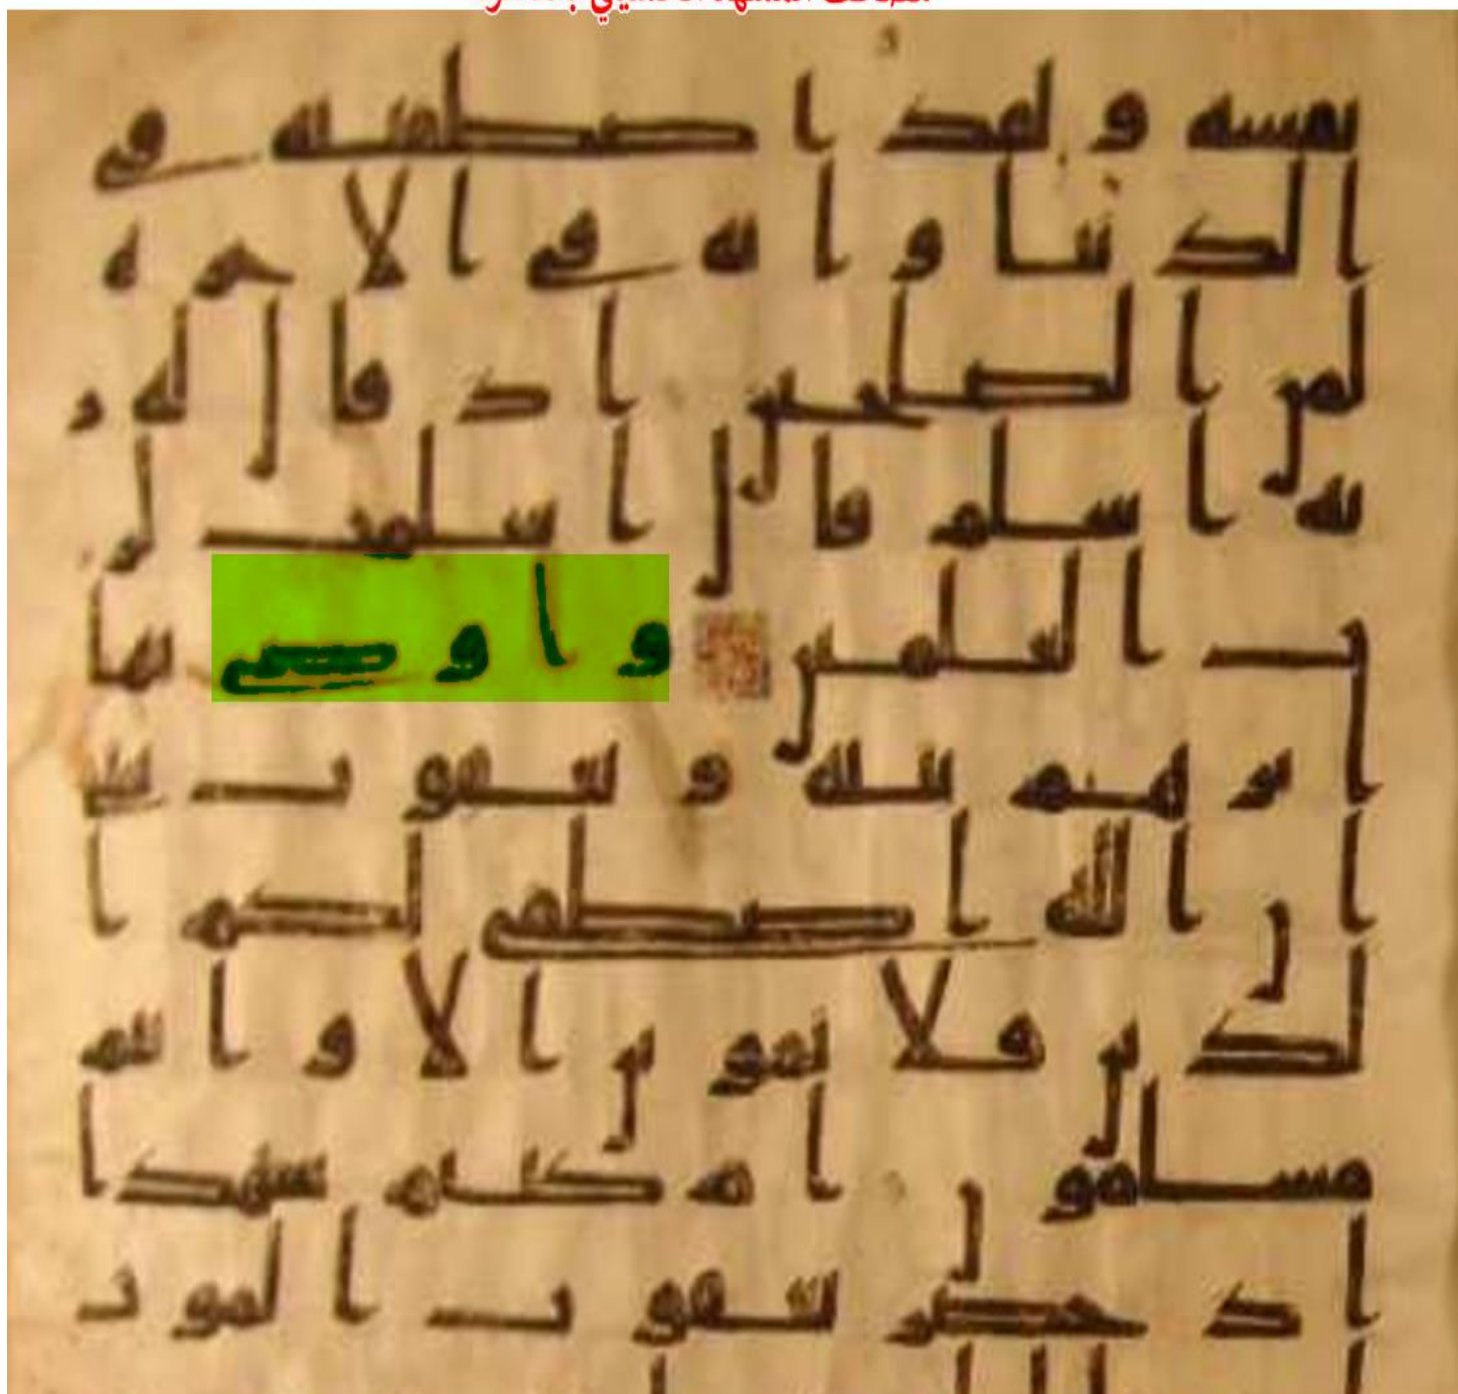 نفسه و لقد ا صطفىنه في
الد نيا و ا نه في ا لا خر ه
لمن ا لصلحين ا ذ قا ل له ر
به ا سلم قا ل ا سلمت لر
ب ا لعلمين و ا و صى بها
ا بر هيم بنيه و يعقو ب يبني
ا ن ا لله ا صطفى لكم ا
لد ين فلا تمو تن ا لا و ا نتم
مسلمو ن ا م كنتم شهد ا
ا ذ حضر يعقو ب ا لمو ت